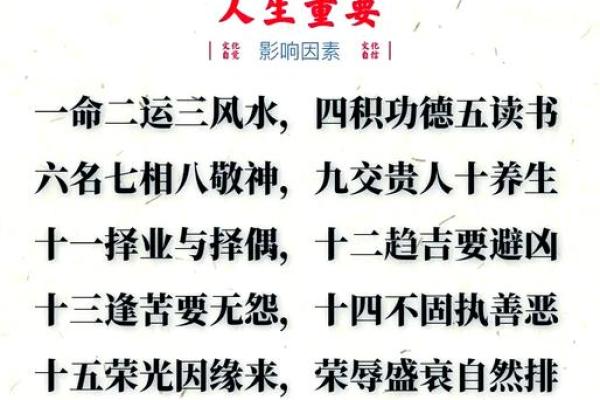 人生重要
文化自觉 影响因素 文化自信
一命二运三风水，四积功德五读书
六名七相八敬神，九交贵人十养生
十一择业与择偶，十二趋吉要避凶
十三逢苦要无怨，十四不固执善恶
十五荣光因缘来，荣辱盛衰自然排